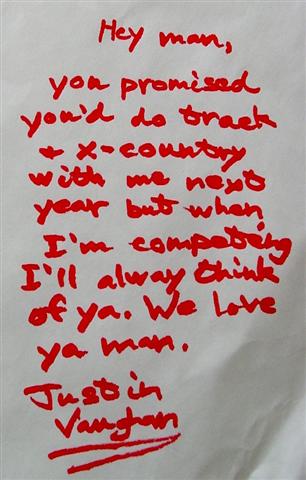 Hey man,
you promised
you'd do track
& x-country
with me next
year but when
I'm competing
I'll alway think
of ya. We love
ya man.
Justin
Vaughan